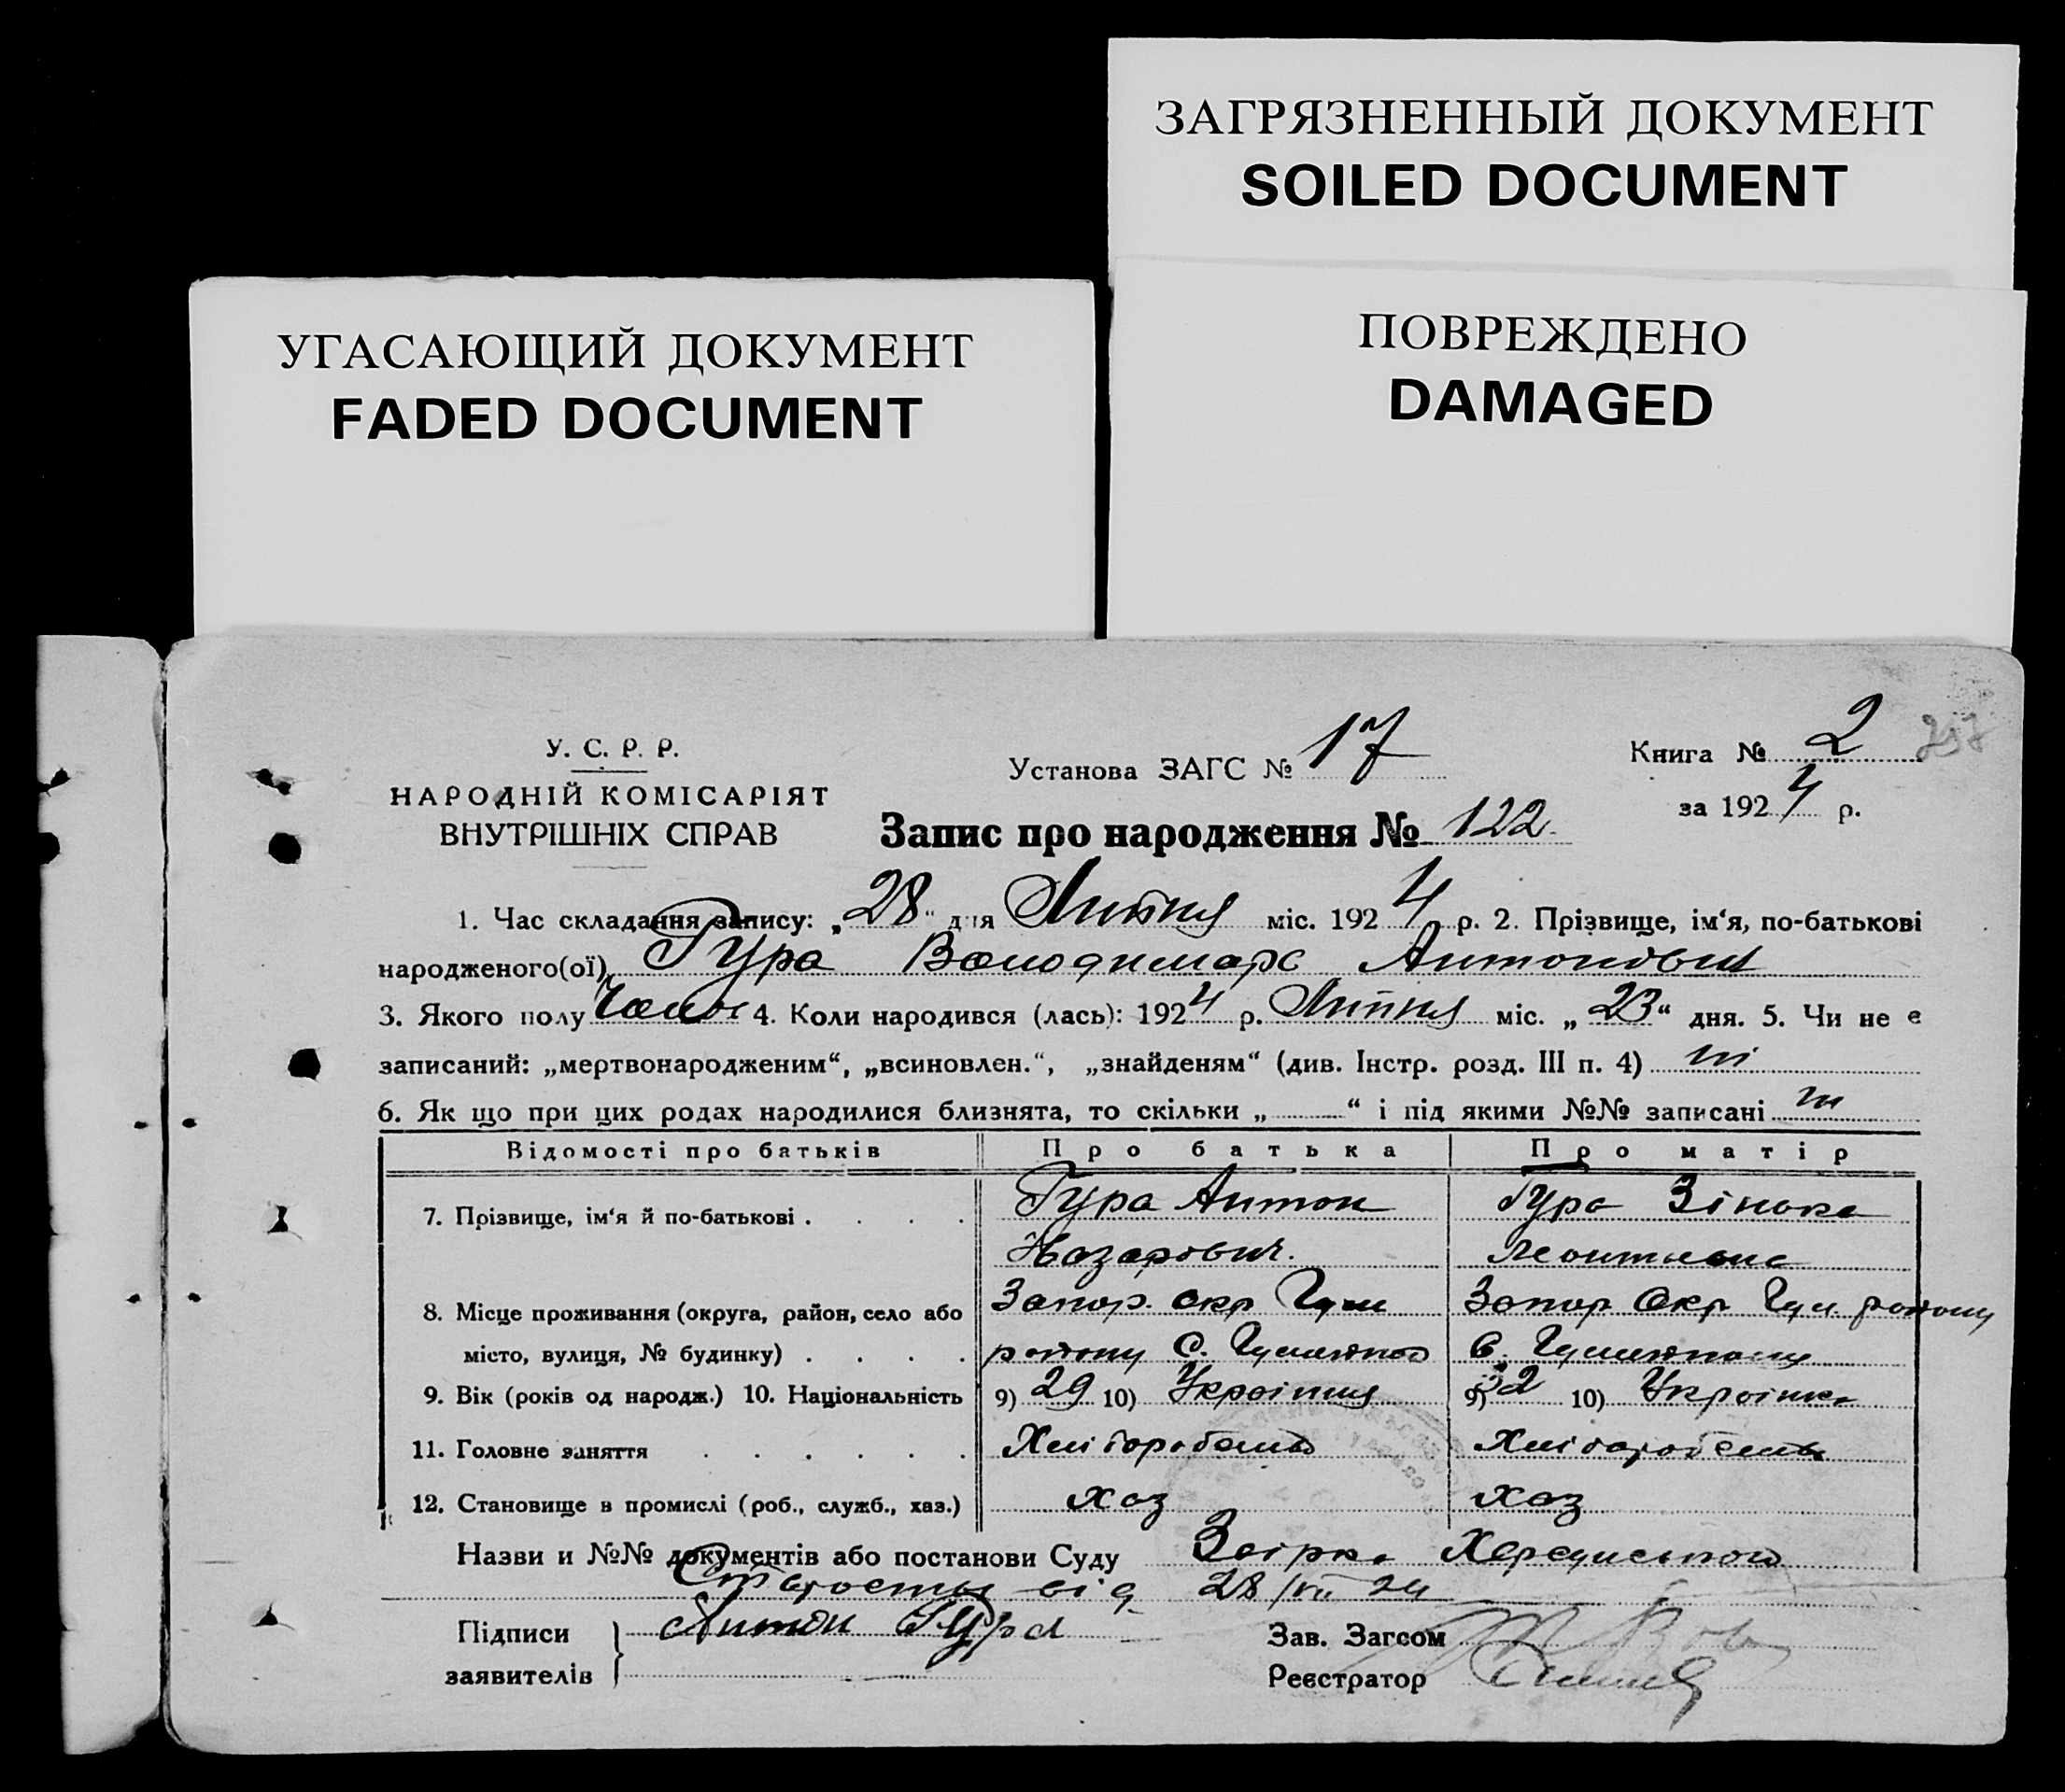 ЗАГРЯЗНЕННЫЙ ДОКУМЕНТ
SOILED DOCUMENT
УГАСАЮЩИЙ ДОКУМЕНТ
FADED DOCUMENT
ПОВРЕЖДЕНО
DAMAGED
У. С. Р. Р.
НАРОДНІЙ КОМІСАРІЯТ
ВНУТРІШНІХ СПРАВ
Установа ЗАГС № 17
Книга № 2
за 1924 р.
Запис про народження № 122
1. Час складання запису: „28“ дня Липня міс. 1924 р. 2. Прізвище, ім‘я, по-батькові
народженого(ої) Гура Володимарс Антонович
3. Якого полу Чолов 4. Коли народився (лась): 1924 р. Липня міс. „23“ дня. 5. Чи не є
записаний: „мертвонародженим“, „всиновлен.“, „знайденям“ (див. Інстр. розд. III п. 4) ні
6. Як що при цих родах народилися близнята, то скільки „ “ і під якими №№ записані ні
Відомості про батьків Про батька Про матір
7. Прізвище, ім‘я й по-батькові . . . . Гура Антон Гура Зінька
Назарович. Леонтьевна
8. Місце проживання (округа, район, село або Запор. окр Гул Запор Окр Гул. району
місто, вулиця, № будинку) . . . . району С. Гуляйполе С. Гуляйполя
9. Вік (років од народж.) 10. Національність 9) 29 10) Україния 9) 32 10) Українка
11. Головне заняття . . . . . . Хліборобство Хліборобство
12. Становище в промислі (роб., служб., хаз.) хаз хаз
Назви и №№ документів або постанови Суду
від 28/VII 24
Підписи Антон Гура Зав. Загсом
заявителів Реєстратор